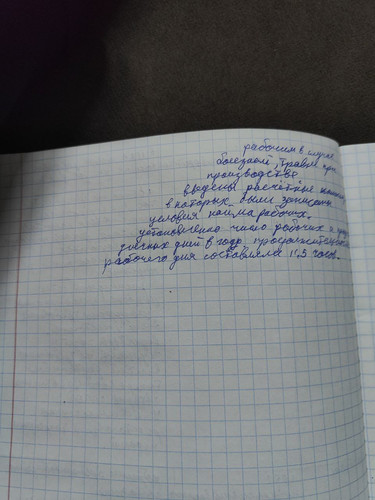 рабочим в случае
болезней, травм при
производстве.
выданы расчётные книжки
в которых были записаны
условия найма рабочих.
установлено число рабочих и
дней в году, продолжительность
рабочего дня составляла 11,5 часов.